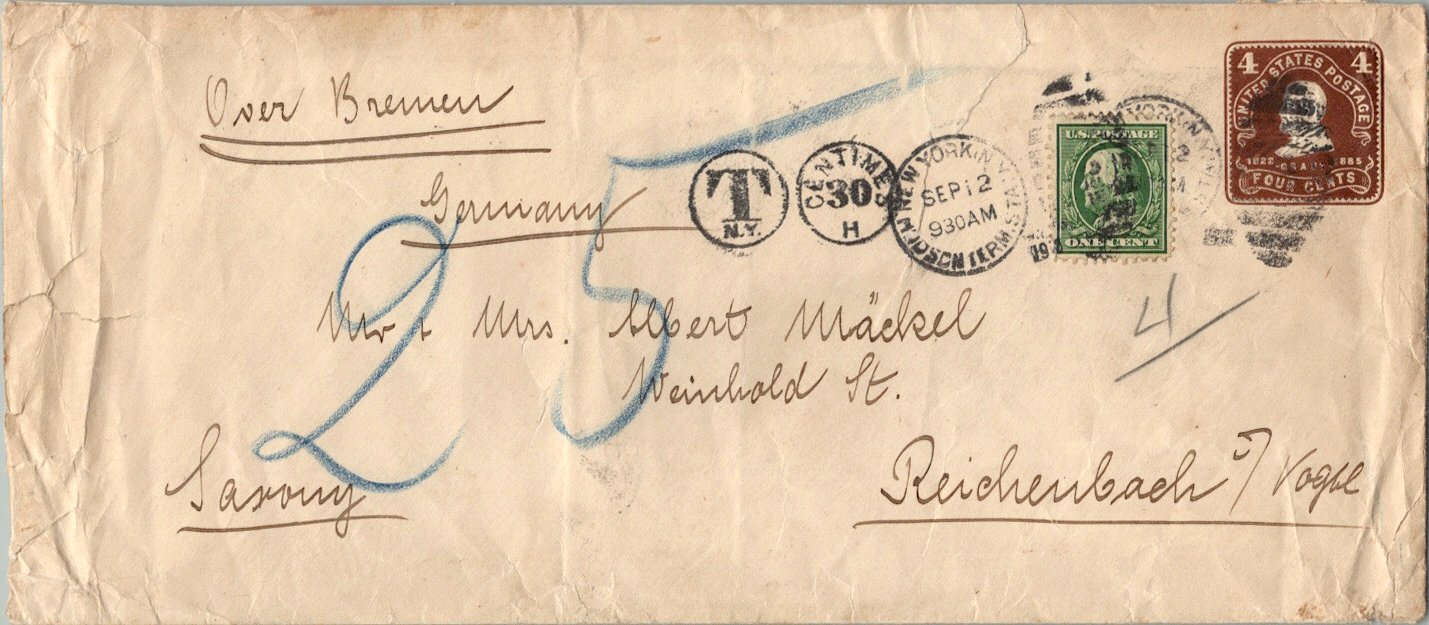 Over Bremen
Germany
Mr & Mrs. Albert Mäckel
Weinhold St.
Reichenbach i/ Vogtl
Saxony
25
T
N.Y.
CENTIMES
30
H
NEW YORK, N.Y.
SEP 12
930AM
HUDSON TERM. STA.
U.S. POSTAGE
ONE CENT
4 4
UNITED STATES POSTAGE
1822-GRANT-1885
FOUR CENTS
4